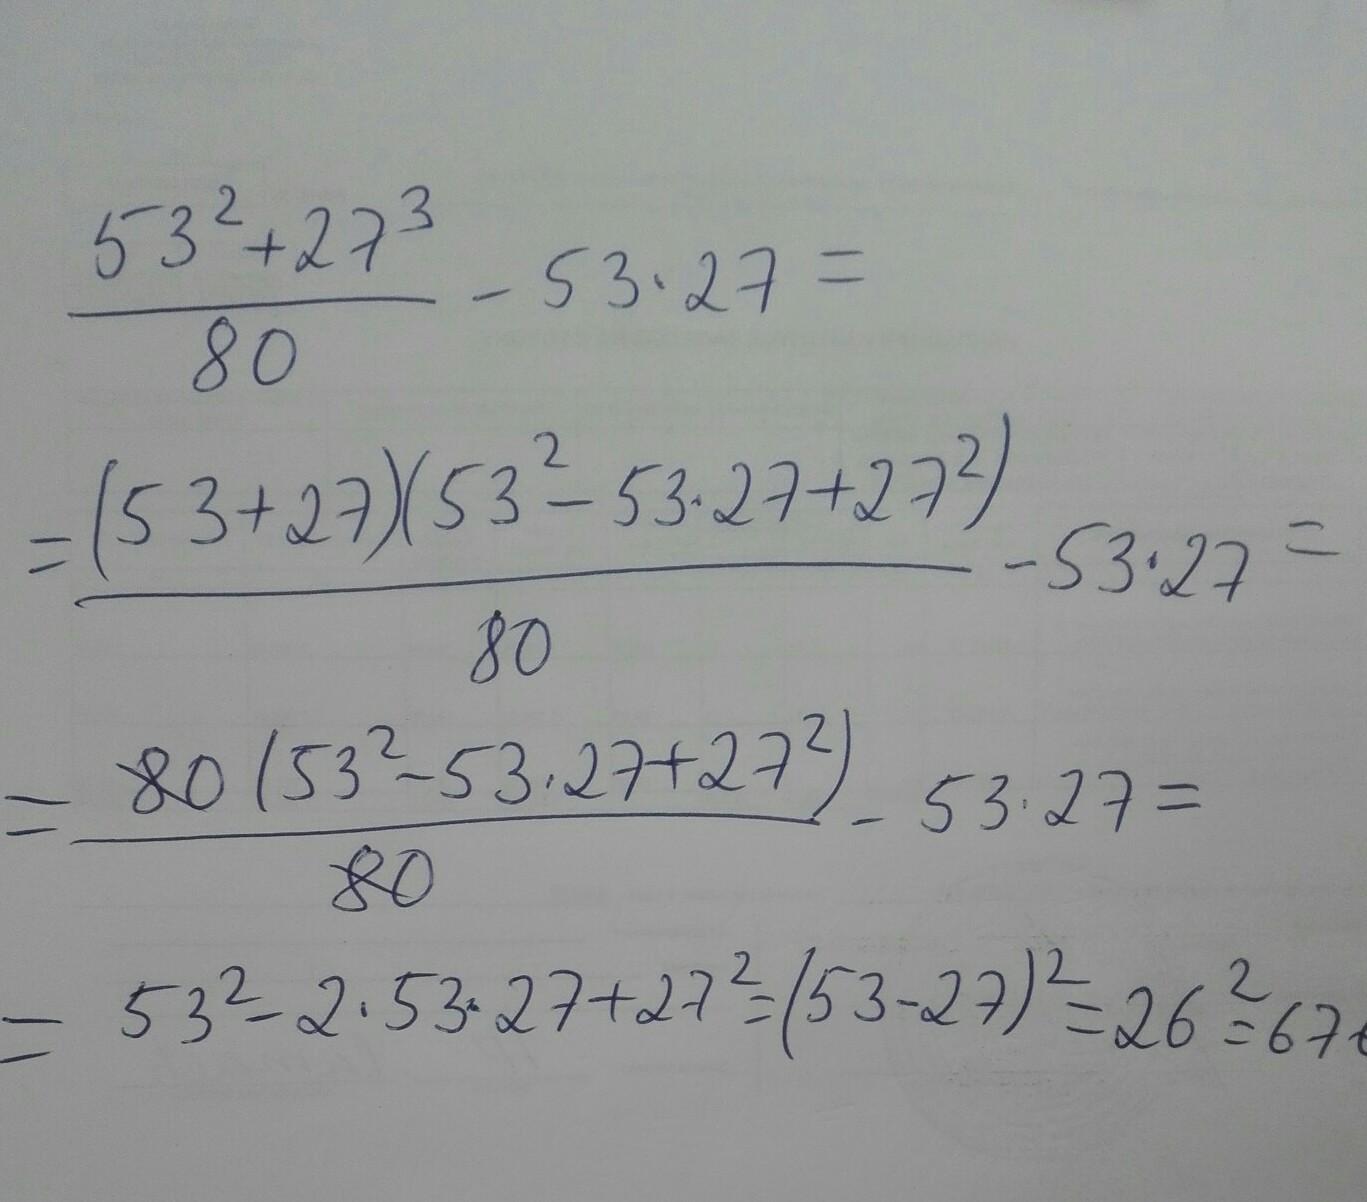 (53² + 27³)/80 - 53·27 =
= (53+27)(53² - 53·27 + 27²)/80 - 53·27 =
= 80(53² - 53·27 + 27²)/80 - 53·27 =
= 53² - 2·53·27 + 27² = (53-27)² = 26² = 67